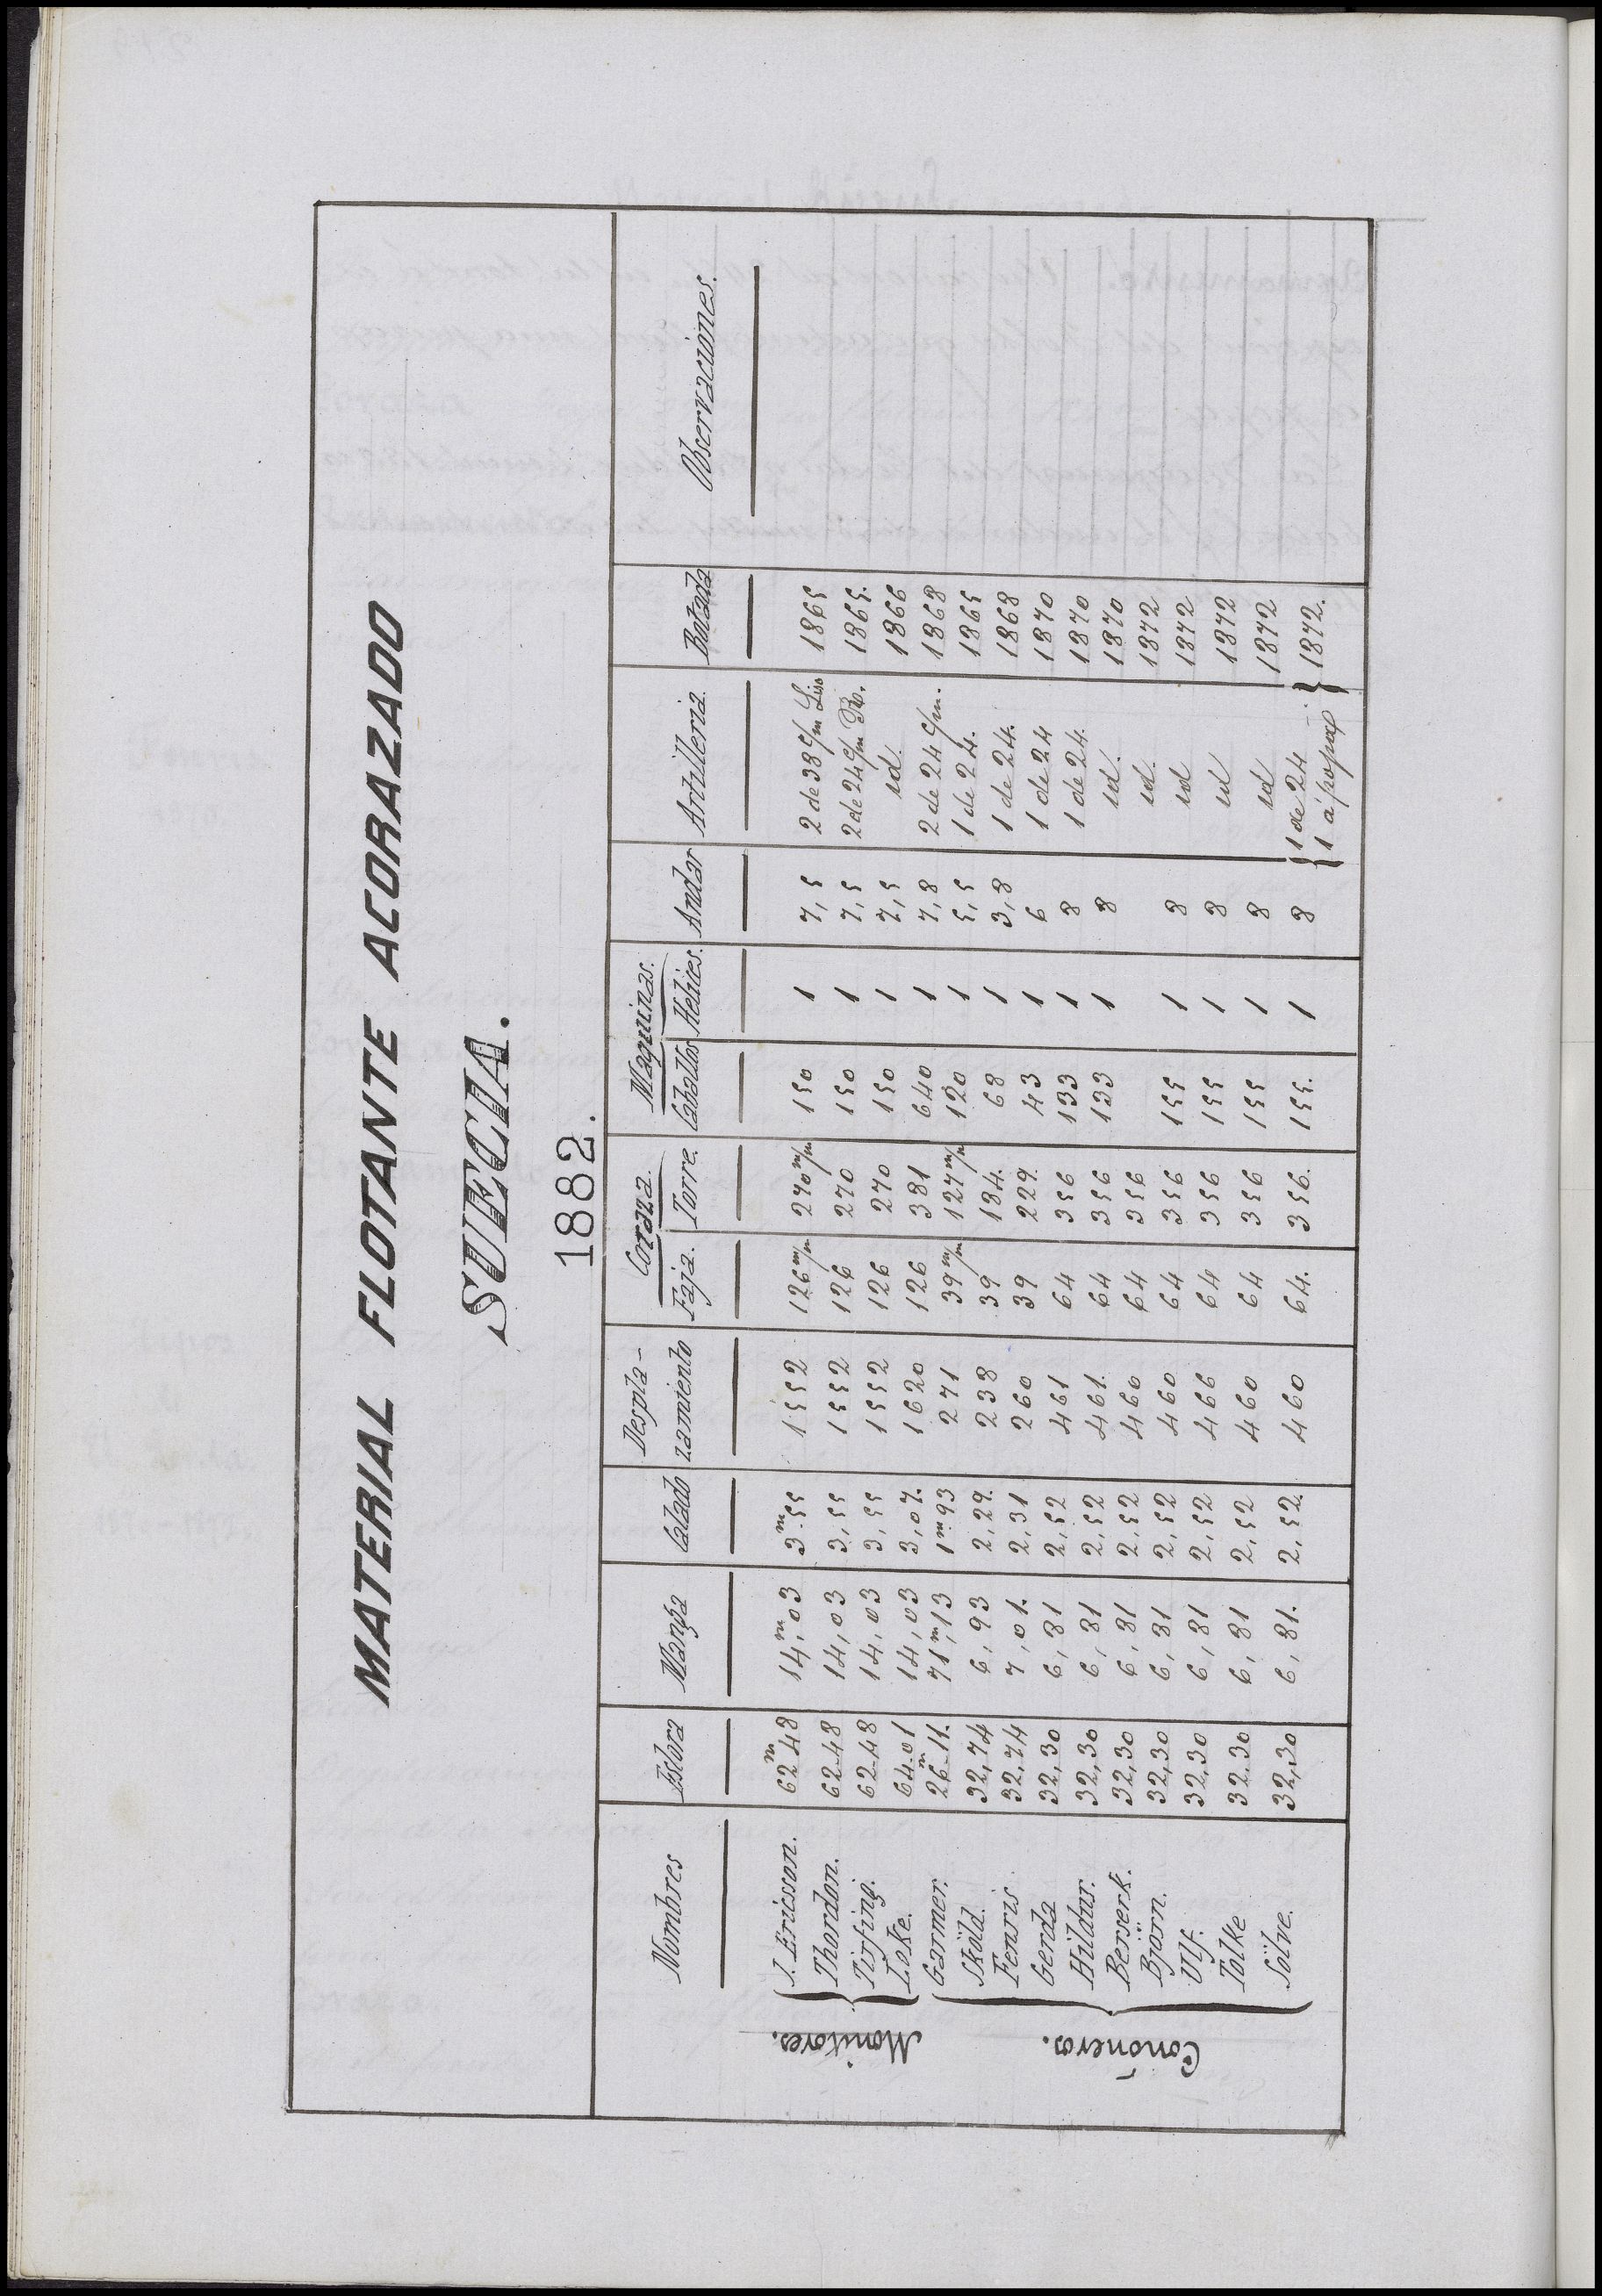 MATERIAL FLOTANTE ACORAZADO
SUECIA.
1882.
Nombres Eslora Manga Calado Despla- Coraza. Maquinas. Andar Artilleria. Botada Observaciones.
zamiento Faja. Torre. Caballos Helices.
Monitores.
J. Ericsson. 62m48 14m,03 3m55 1552 126 m/m 270 m/m 150 1 7,5 2 de 38 c/m Liso 1865
Thordon. 62-48 14,03 3,55 1552 126 270 150 1 7,5 2 de 24 c/m Ro. 1865.
Tirfing. 62-48 14,03 3,55 1552 126 270 150 1 7,5 id. 1866
Loke. 64.01 14,03 3,07. 1620 126 381 640 1 7,8 2 de 24 c/m. 1868
Cañoneros.
Garmer. 26m-11. 71m,13 1m93 271 39 m/m 127 m/m 120 1 5,5 1 de 24. 1865
Sköld. 32,74 6,93 2,29. 238 39 184. 68 1 3,8 1 de 24. 1868
Fenris 32,74 7,01. 2,31 260 39 229. 43 1 6 1 de 24 1870
Gerda 32,30 6,81 2,52 461 64 356 133 1 8 1 de 24. 1870
Hildur. 32,30 6,81 2,52 461. 64 356 133 1 8 id. 1870
Berserk. 32,30 6,81 2,52 460 64 356 id. 1872
Björn. 32,30 6,81 2,52 460 64 356 155 1 8 id 1872
Ulf. 32,30 6,81 2,52 466 64 356 155 1 8 id 1872
Tölke 32.30 6,81 2,52 460 64 356 155 1 8 id 1872
Sölve. 32,30 6,81. 2,52. 460 64. 356. 155. 1 8 1 de 24 1872.
1 á popa